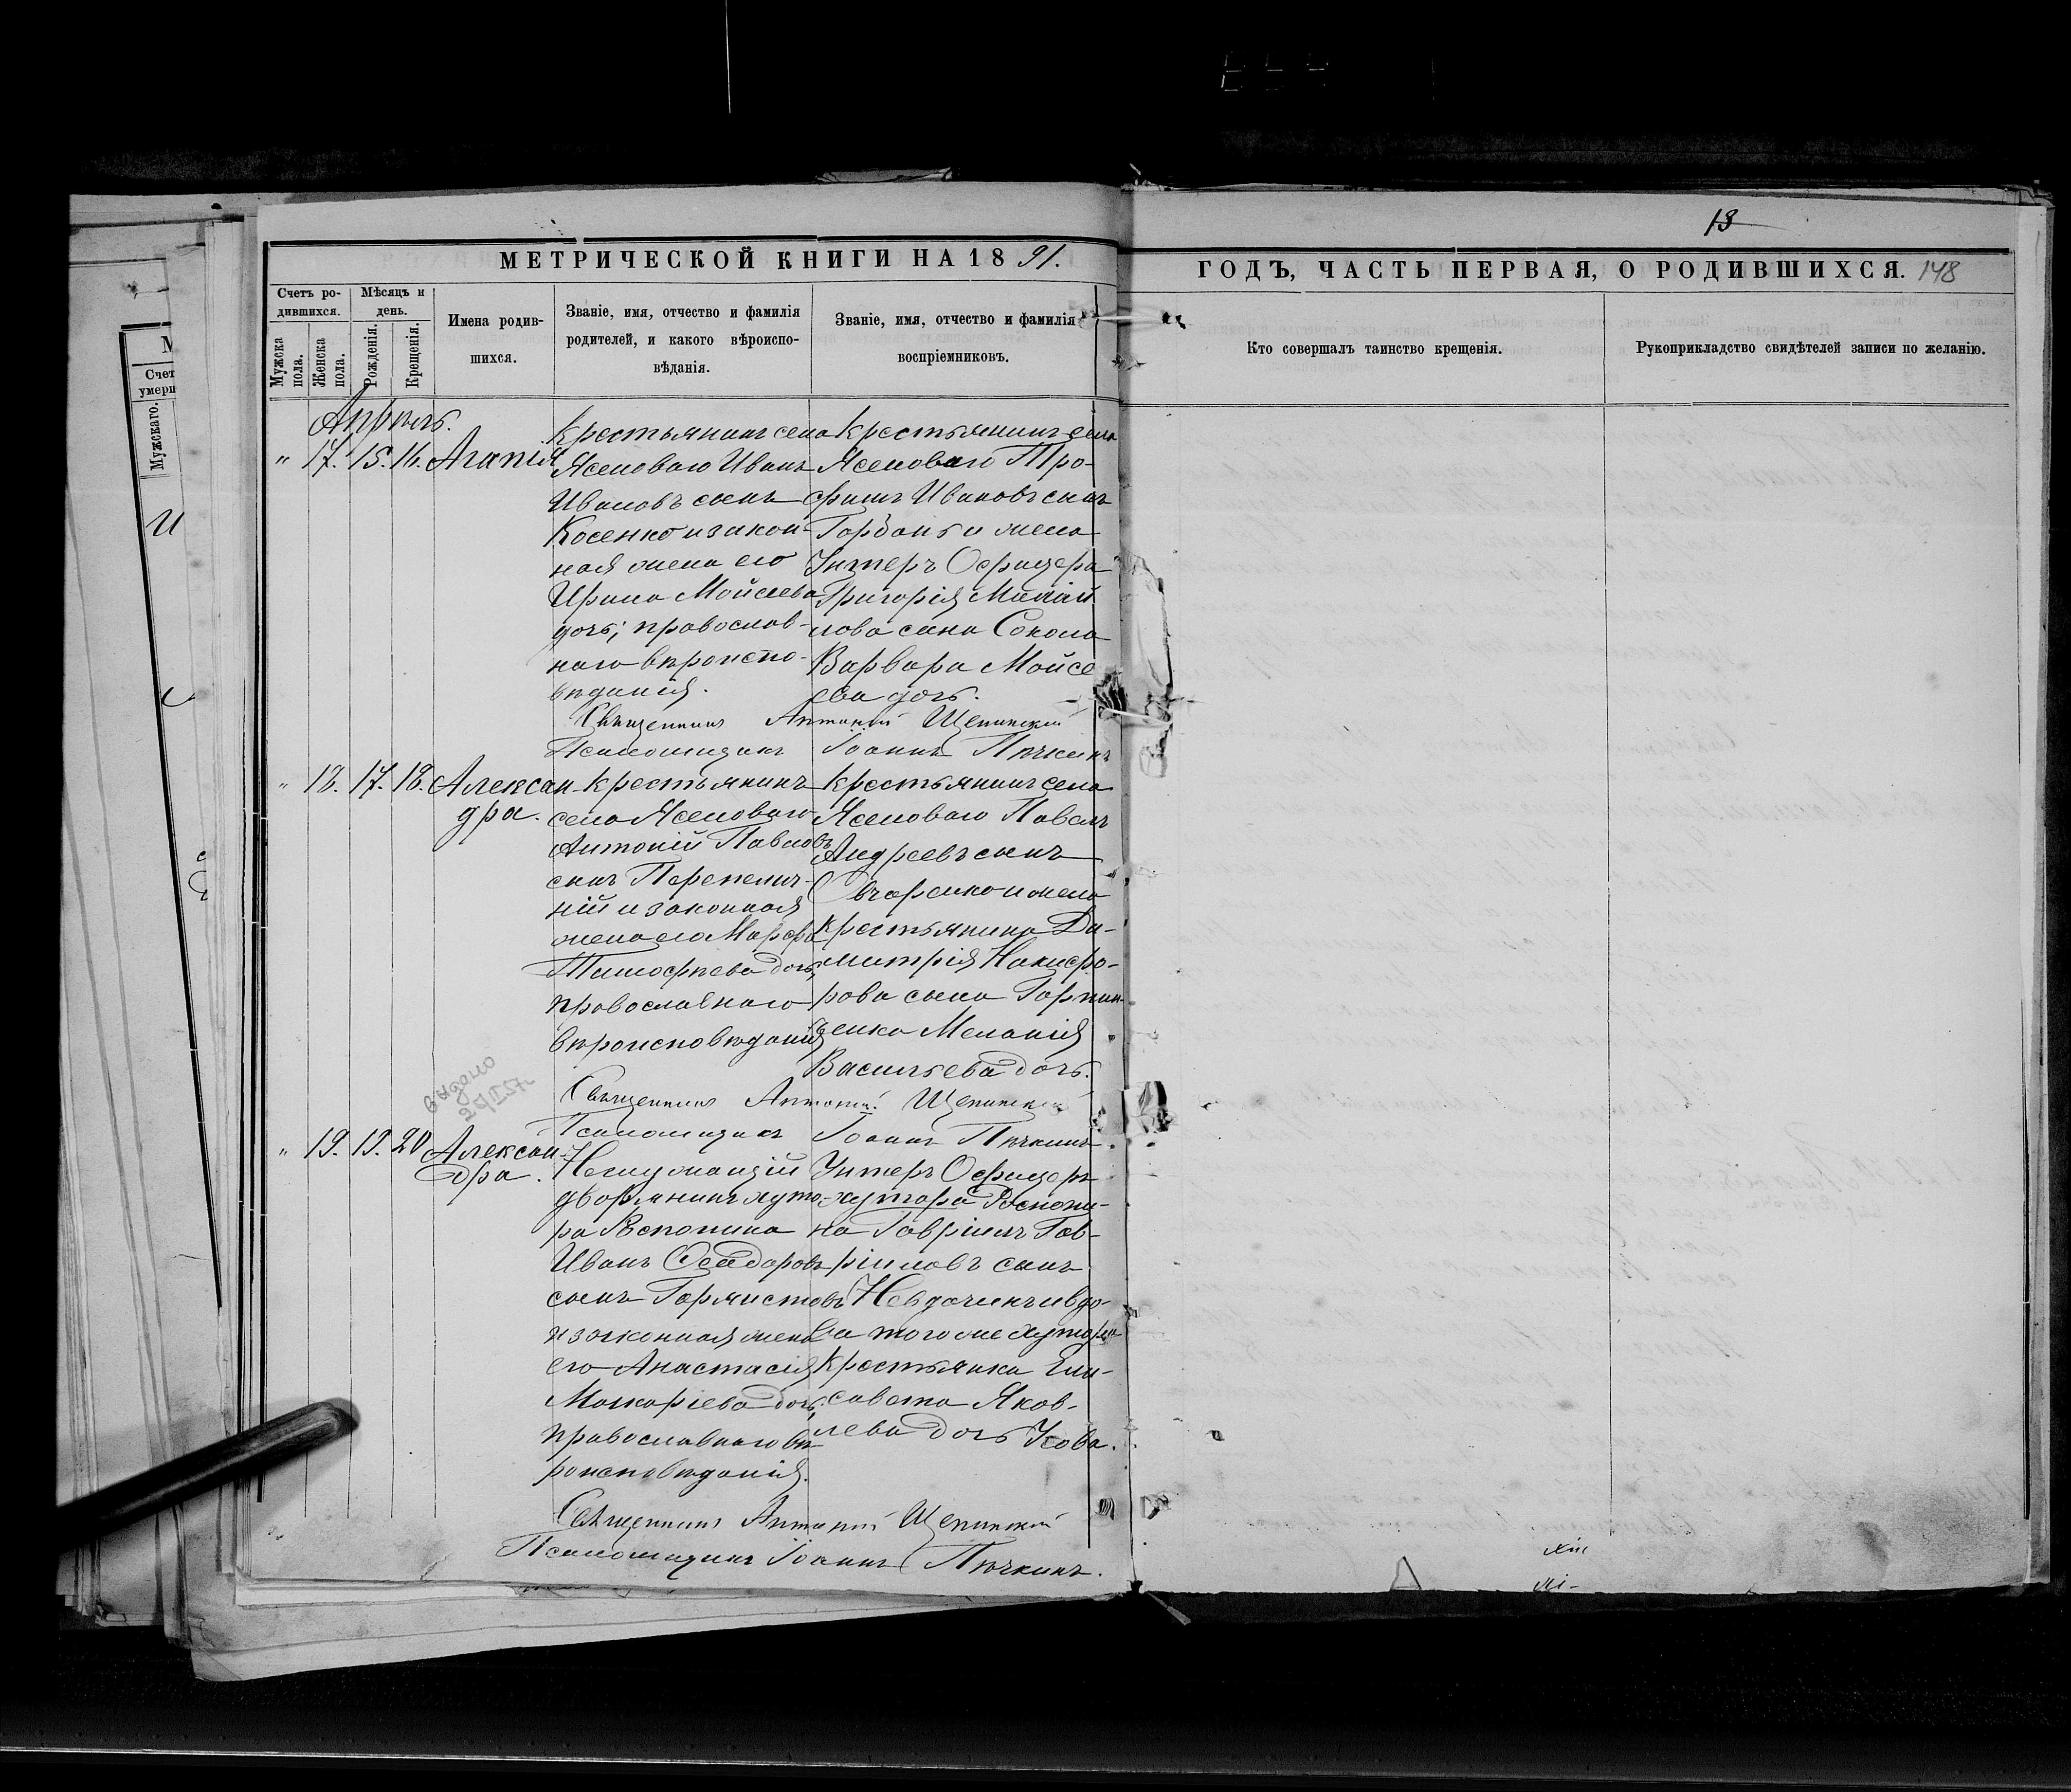 13
МЕТРИЧЕСКОЙ КНИГИ НА 1891.
ГОДЪ, ЧАСТЬ ПЕРВАЯ, О РОДИВШИХСЯ. 148
Счетъ ро-
дившихся.
Мѣсяцъ и
день.
Мужска
пола.
Женска
пола.
Рожденія.
Крещенія.
Имена родив-
шихся.
Званіе, имя, отчество и фамилія
родителей, и какого вѣроиспо-
вѣданія.
Званіе, имя, отчество и фамилія
воспріемниковъ.
Кто совершалъ таинство крещенія.
Рукоприкладство свидѣтелей записи по желанію.
Апрѣль.
" 17. 15. 16. Агапія
Крестьянинъ села
Ясеноваго Иванъ
Ивановъ сынъ
Косенко и закон-
ная жена его
Ирина Мойсеева
дочь; православ-
наго вѣроиспо-
вѣданія.
Крестьянинъ села
Ясеноваго Тро-
фимъ Ивановъ сынъ
Горбань и жена
Унтеръ Офицера
Григорія Михай
лова сына Сокола
Варвара Мойсе
ева дочь.
Священникъ Антоній Щепинскій
Псаломщикъ Іоаннъ Пѣчкинъ
" 18. 17. 18. Алексан
дра.
Крестьянинъ
села Ясеноваго
Антоній Павловъ
сынъ Перепелич-
ній и законная
жена его Марфа
Тимофеева дочь,
православнаго
вѣроисповѣданія
Крестьянинъ села
Ясеноваго Павелъ
Андреевъ сынъ
Овчаренко и жена
крестьянина Ди-
митрія Никифо-
рова сына Горпин
ченко Меланія
Васильева дочь.
Священникъ Антоній Щепинскій
Псаломщикъ Іоаннъ Пѣчкинъ.
видано
" 19. 19. 20 Алексан
дра.
Неслужащій
дворянинъ хуто-
ра Роспопина
Иванъ Феодоровъ
сынъ
и законная жена
его Анастасія
Макаріева дочь,
православнаго вѣ
роисповѣданія.
Унтеръ Офицеръ
хутора Роспопи-
на Гавріилъ Гав-
ріиловъ сынъ
и вдо-
ва того же хутора
крестьянка Ели-
савета Яков-
лева дочь Усова.
Священникъ Антоній Щепинскій
Псаломщикъ Іоаннъ Пѣчкинъ.
М
Счет
умерш
Мужскаго.